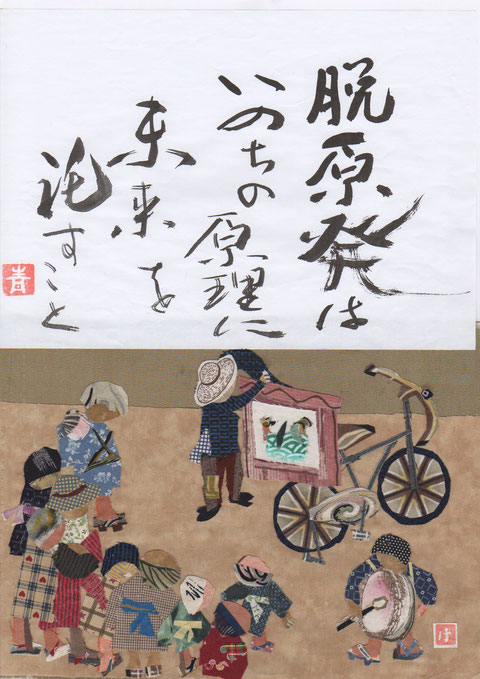 脱原発は
いのちの
原理に
未来を
託すこと
青